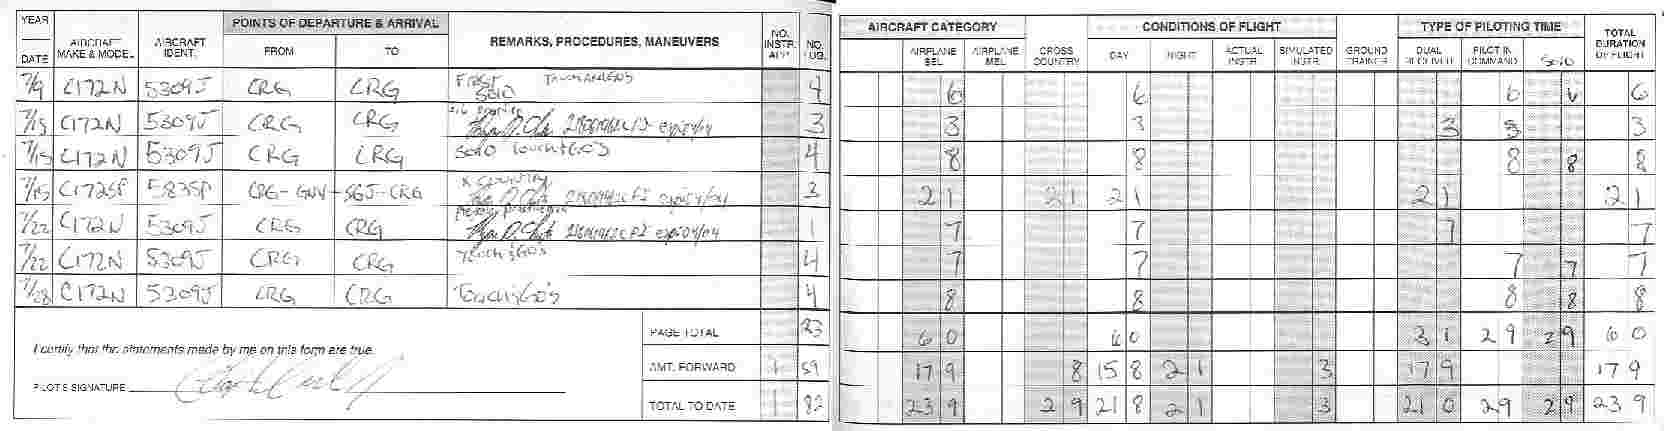 YEAR POINTS OF DEPARTURE & ARRIVAL AIRCRAFT CATEGORY CONDITIONS OF FLIGHT TYPE OF PILOTING TIME
DATE AIRCRAFT MAKE & MODEL AIRCRAFT IDENT. FROM TO REMARKS, PROCEDURES, MANEUVERS NO. INSTR. APP. NO. LDG. AIRPLANE SEL AIRPLANE MEL CROSS COUNTRY DAY NIGHT ACTUAL INSTR. SIMULATED INSTR. GROUND TRAINER DUAL RECEIVED PILOT IN COMMAND Solo TOTAL DURATION OF FLIGHT
7/9 C172N 5309J CRG CRG FIRST SOLO 4 6 6 6 6 6
7/15 C172N 5309J CRG CRG 3 3 3 3 3 3
7/15 C172N 5309J CRG CRG Solo Touch&GO's 4 8 8 8 8 8
7/15 C172SP 583SP CRG-GNV-SGJ-CRG X COUNTRY 3 2 1 2 1 2 1 2 1 2 1
7/22 C172N 5309J CRG CRG 1 7 7 7 7
7/22 C172N 5309J CRG CRG Touch&GO's 4 7 7 7 7 7
7/28 C172N 5309J CRG CRG Touch&GO's 4 8 8 8 8 8
PAGE TOTAL 23 6 0 6 0 3 1 2 9 2 9 6 0
I certify that the statements made by me on this form are true.
AMT. FORWARD 1 59 17 9 8 15 8 2 1 3 17 9 17 9
PILOT'S SIGNATURE
TOTAL TO DATE 1 82 23 9 2 9 21 8 2 1 3 21 0 2 9 2 9 23 9